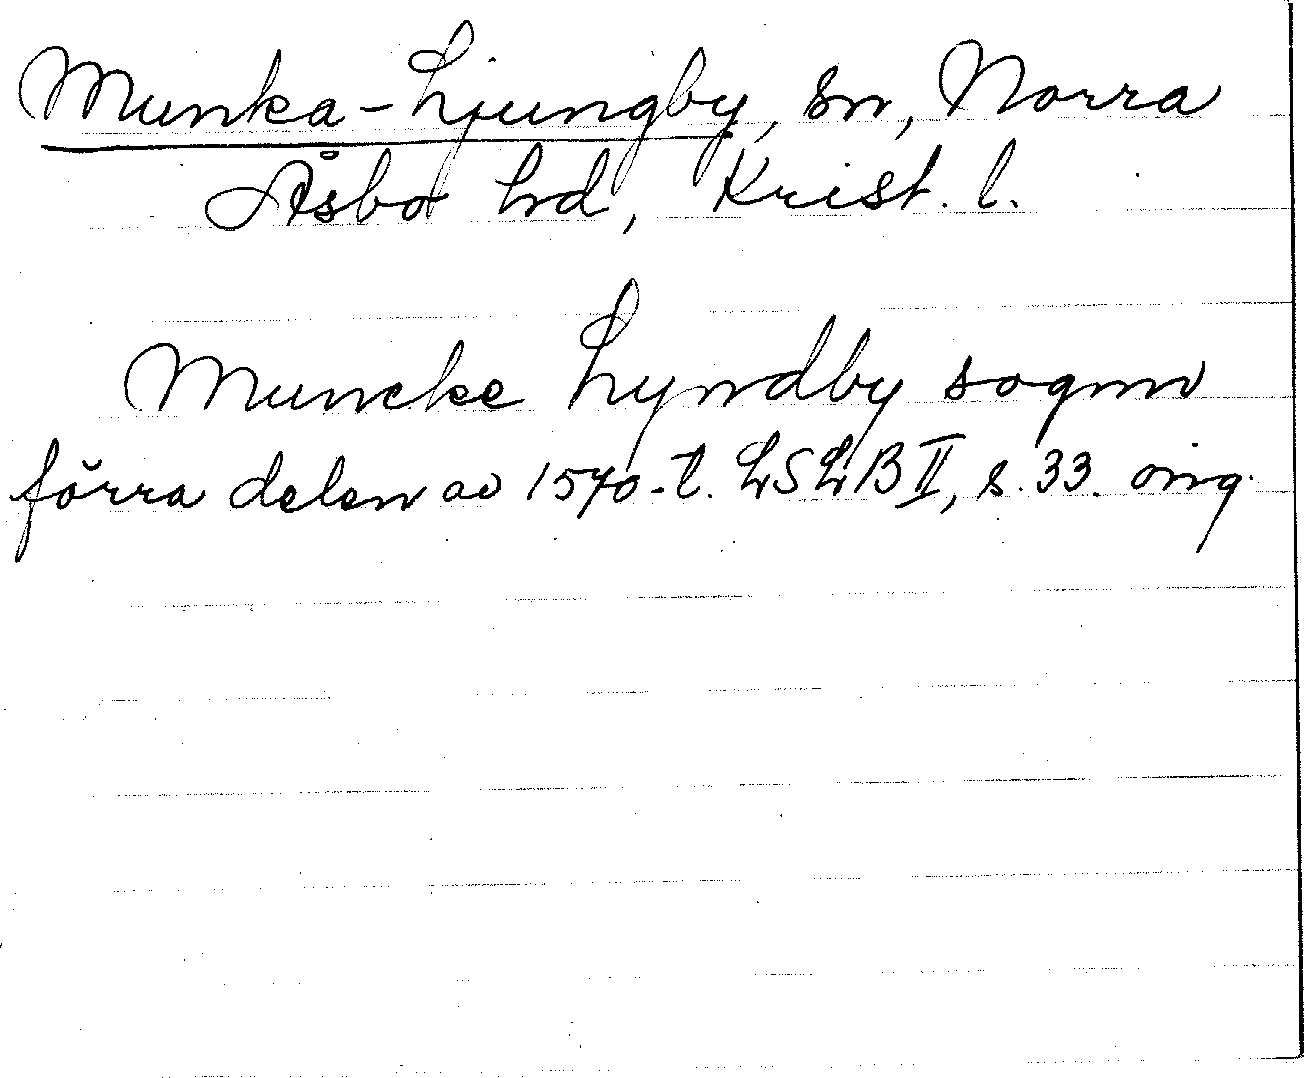 Munka-Ljungby, sn, Norra
Åsbo hd, Krist. l.
Muncke Lyndby sognn
förra delen av 1570-t. LSLB II, s. 33. orig.